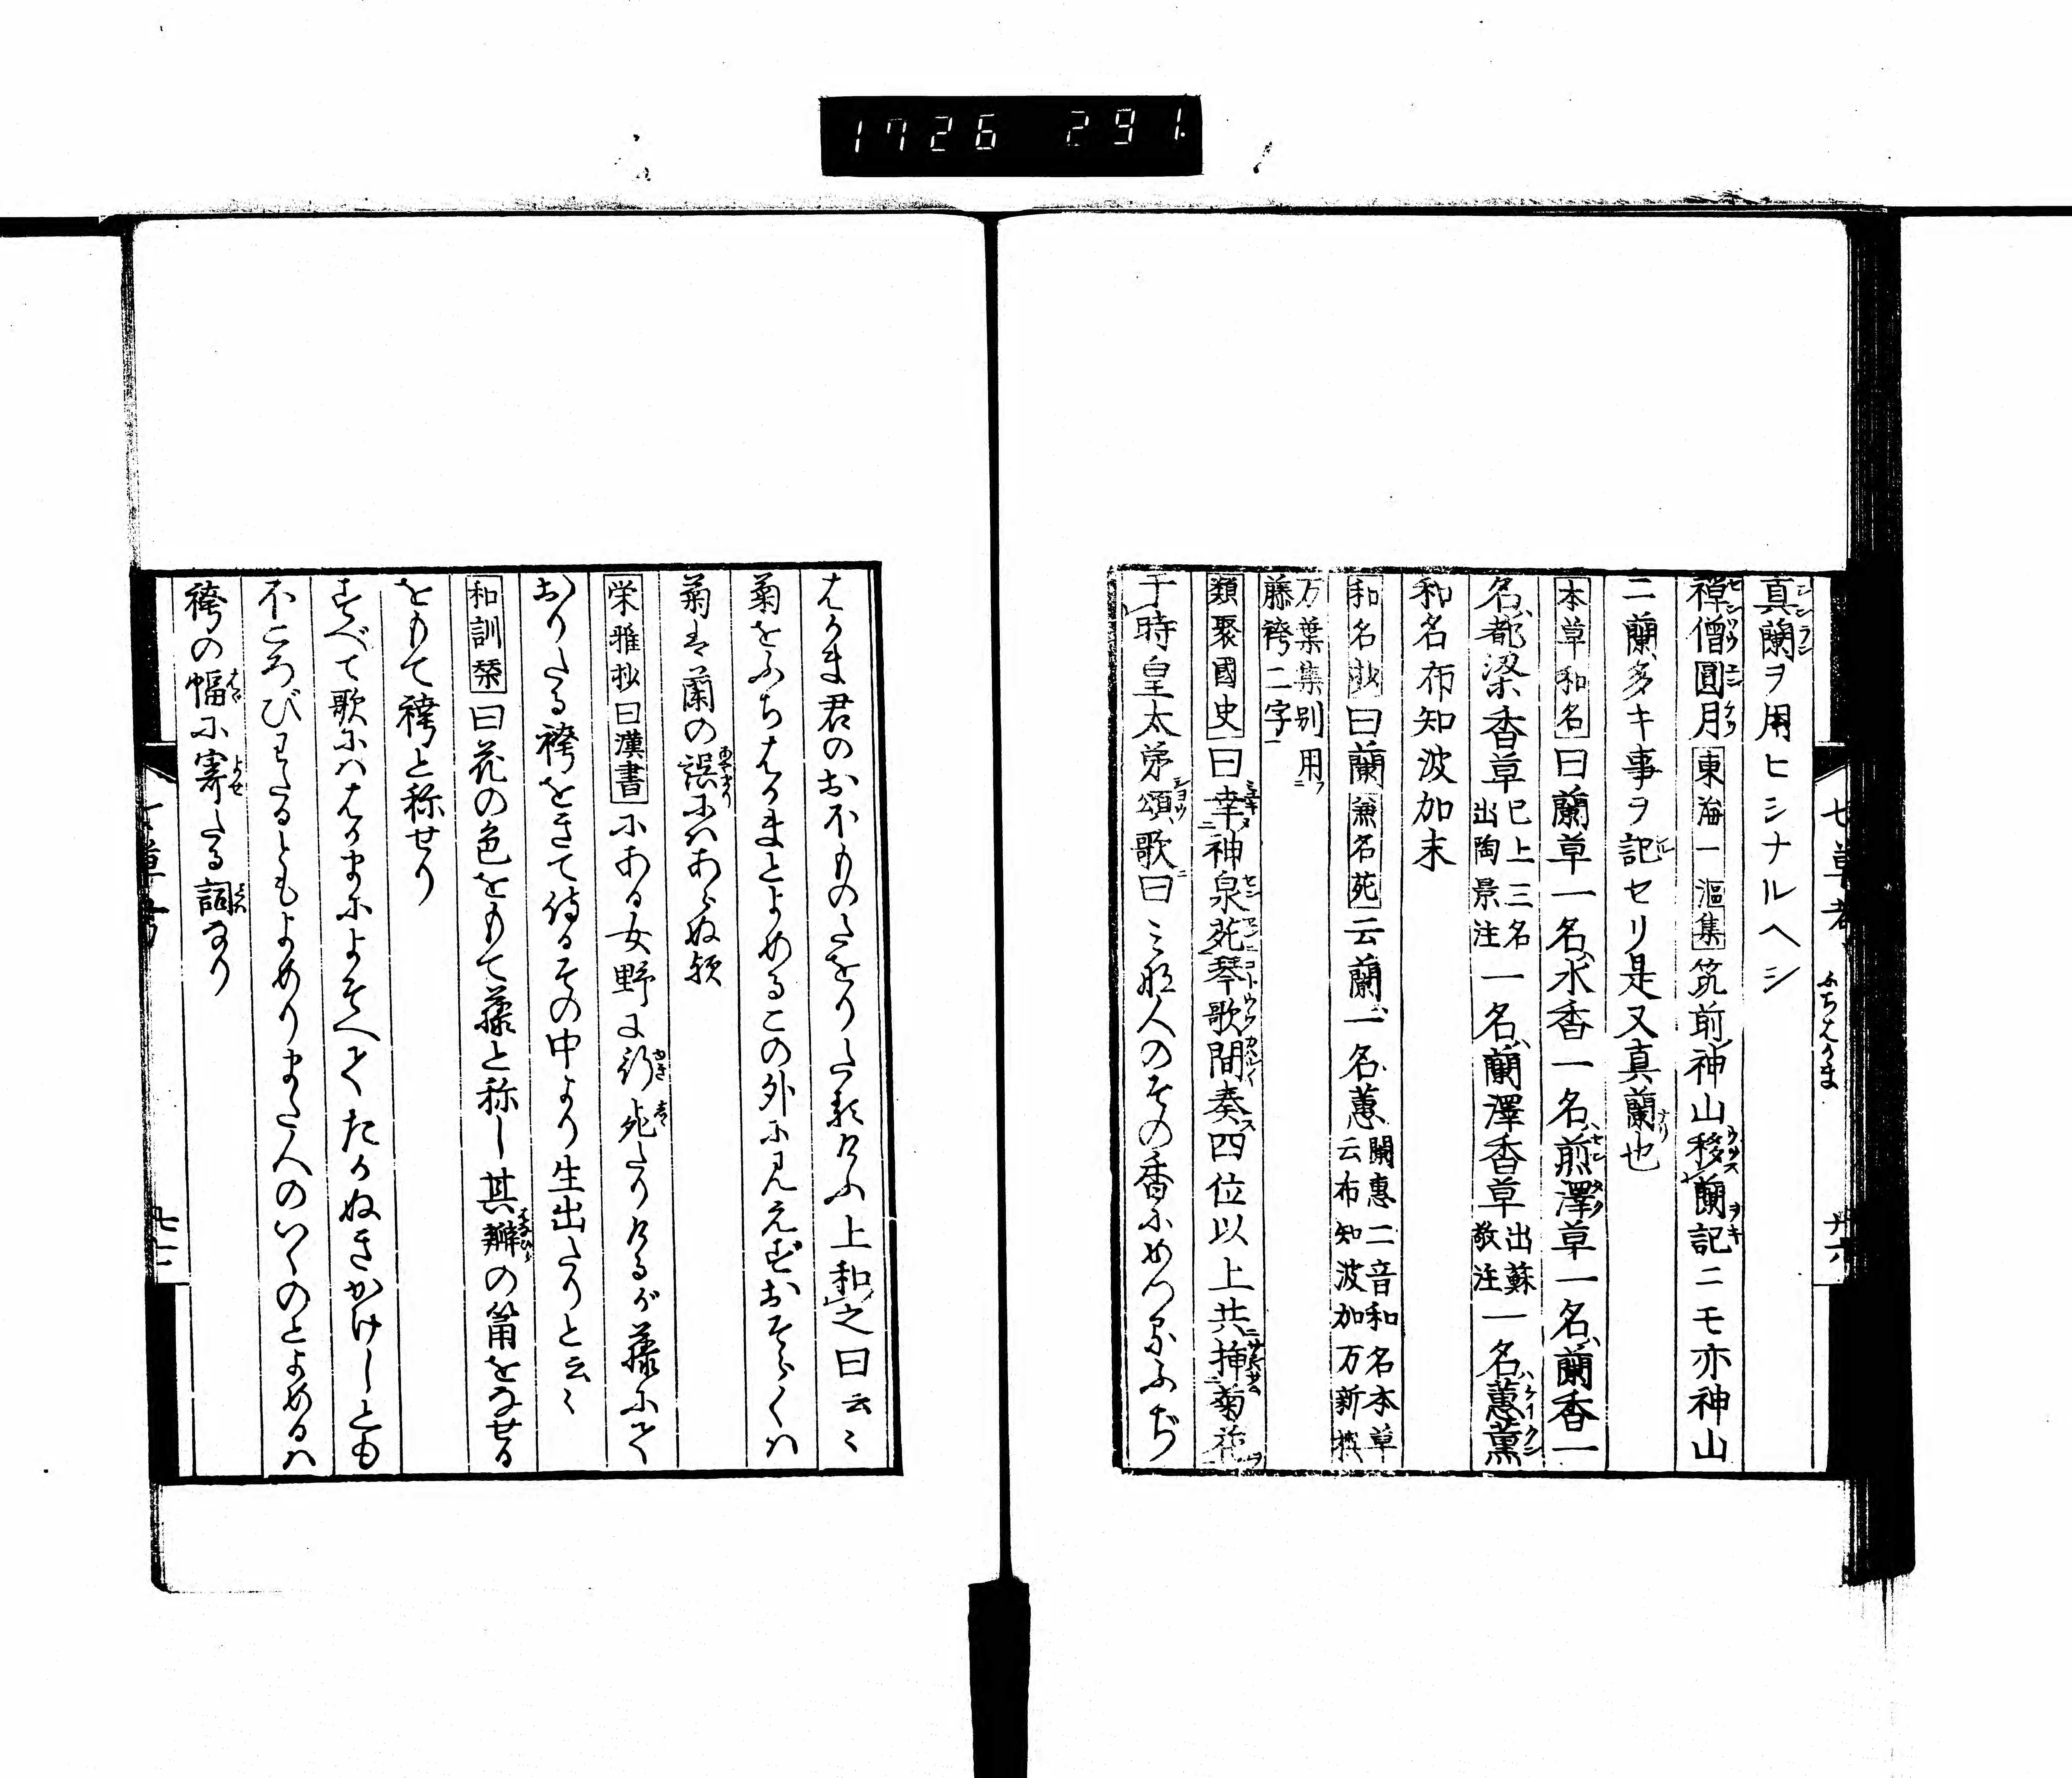 1726 291
七草考 ふちはかま
真蘭ヲ用ヒシナルヘシ
禅僧圓月東海一漚集筑前神山移蘭記ニモ亦神山
ニ蘭多キ事ヲ記セリ是又真蘭也
本草和名曰蘭草一名水香一名煎澤草一名蘭香一
名都梁香草已上三名出陶景注一名蘭澤香草出蘇敬注一名蕙薫
和名布知波加末
和名抄曰蘭兼名苑云蘭一名蕙闌惠二音和名本草云布知波加万新撰
万葉集別用藤袴二字
類聚國史曰幸神泉苑琴歌間奏四位以上共挿菊花
于時皇太弟頌歌曰みな人のその香にめつるふぢ
はかま君のおほものたをりたるけふ上和之曰云々
菊をふちはかまとよめるこの外に見えずおそらくハ
菊は蘭の誤にハあらぬ歟
栄雅抄曰漢書にある女野に行死たりけるが藤にて
おりたる袴をきて侍るその中より生出たりと云々
和訓栞曰花の色をもて藤と称し其瓣の筩をなせる
をもて袴と称せり
すべて歌にハはかまによそへてたかぬきかけしとも
ほころびわたるともよめりまた人のいくのとよめるハ
袴の幅に寄たる詞なり